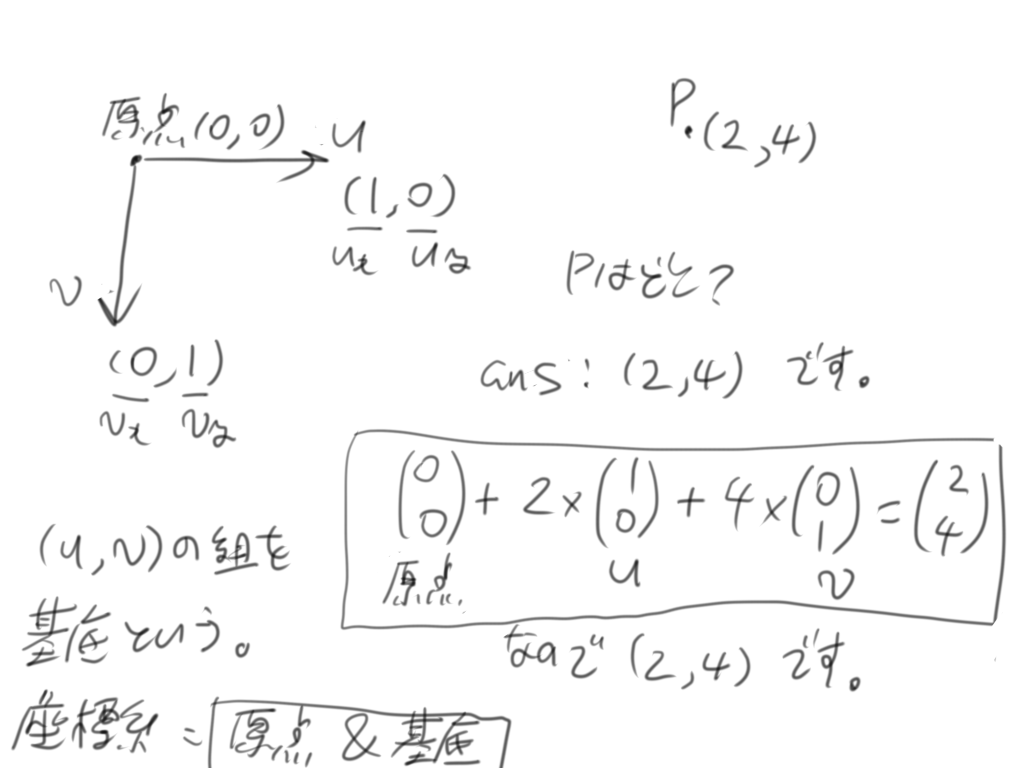 原点(0,0)
u
(1,0)
ux uy
v
(0,1)
vx vy
P.(2,4)
Pはどこ?
ans:(2,4) です。
(0 0)+2×(1 0)+4×(0 1)=(2 4)
原点 u v
なので(2,4)です。
(u,v)の組を
基底という。
座標系=原点&基底